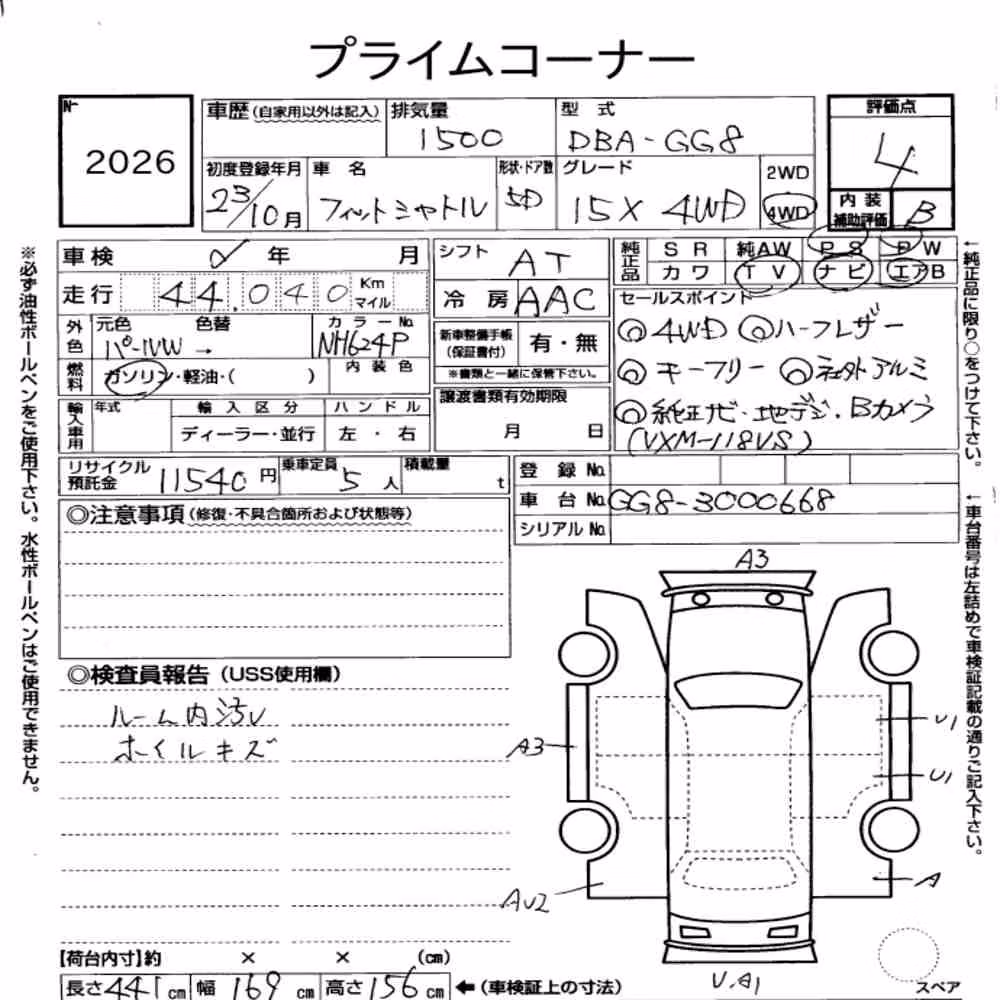 プライムコーナー
No.
2026
車歴(自家用以外は記入)
排気量
1500
型 式
DBA-GG8
評価点
4
初度登録年月
23/10月
車 名
フィットシャトル
形状・ドア数
5D
グレード
15X 4WD
2WD
4WD
内 装
補助評価
B
車検 年 月
シフト
AT
純正品
S R 純AW P S P W
カワ T V ナビ エアB
走行 44,040 Km
マイル
冷 房 AAC
セールスポイント
◎4WD ◎ハーフレザー
◎キーフリー ◎社外アルミ
◎純正ナビ・地デジ・Bカメラ
(VXM-118VS)
外色
元色 色替
パールW →
カラーNo.
NH624P
新車整備手帳
(保証書付)
有・無
※書類と一緒に保管下さい。
燃料
ガソリン・軽油・( )
内 装 色
譲渡書類有効期限
月 日
輸入車用
年式
輸 入 区 分
ハ ン ド ル
ディーラー・並行
左 ・ 右
リサイクル
預託金
11540 円
乗車定員
5 人
積載量
t
登 録 No.
車 台 No. GG8-3000668
シリアル No.
◎注意事項(修復・不具合箇所および状態等)
◎検査員報告 (USS使用欄)
ルーム内汚レ
ホイルキズ
A3
A3
U1
U1
AU2
A
U.A1
スペア
【荷台内寸】約 × × (cm)
長さ441cm 幅169cm 高さ156cm ←(車検証上の寸法)
※必ず油性ボールペンをご使用下さい。水性ボールペンはご使用できません。
←純正品に限り○をつけて下さい。
←車台番号は左詰めで車検証記載の通りご記入下さい。